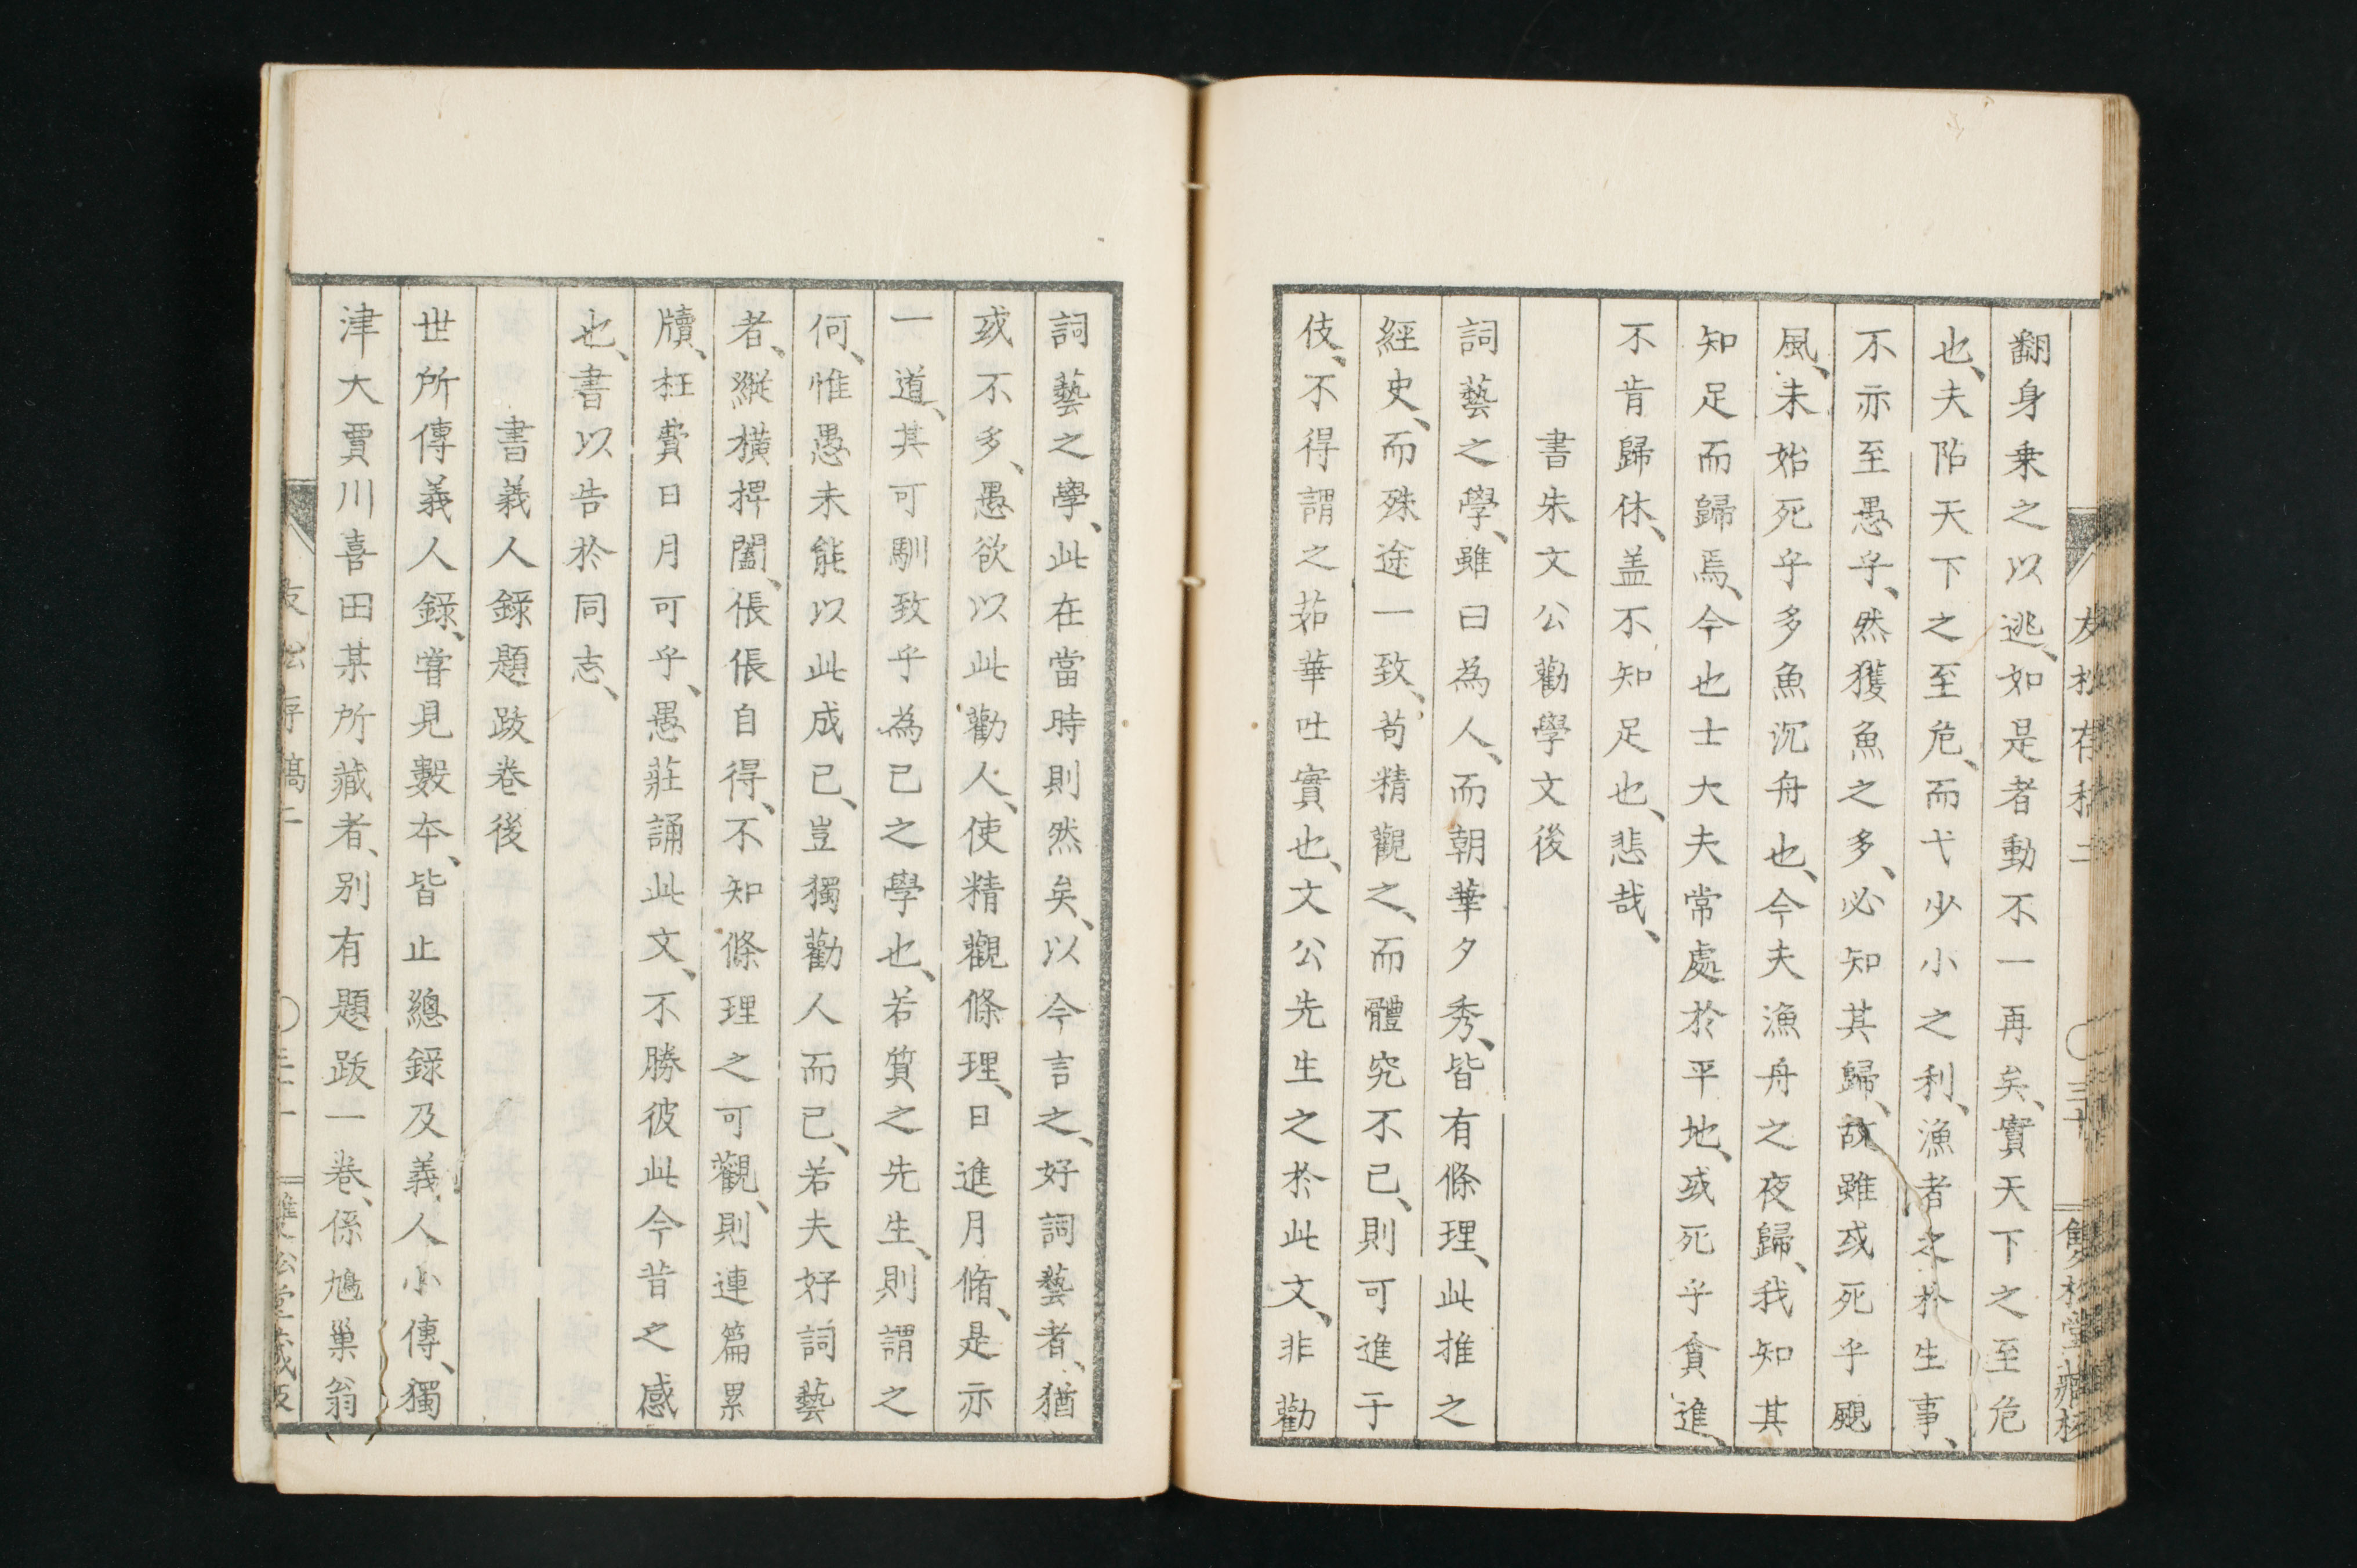 翻身乗之以逃、如是者動不一再矣、實天下之至危
也、夫陷天下之至危、而弋少小之利、漁者之於生事、
不亦至愚乎、然獲魚之多、必知其歸、故雖或死乎颶
風、未始死乎多魚沉舟也、今夫漁舟之夜歸、我知其
知足而歸焉、今也士大夫常處於平地、或死乎貪進、
不肯歸休、盖不知足也、悲哉、
書朱文公勸學文後
詞藝之學、雖曰為人、而朝華夕秀、皆有條理、此推之
經史、而殊途一致、苟精觀之、而體究不已、則可進于
伎、不得謂之茹華吐實也、文公先生之於此文、非勸
詞藝之學、此在當時則然矣、以今言之、好詞藝者、猶
或不多、愚欲以此勸人、使精觀條理、日進月脩、是亦
一道、其可馴致乎為己之學也、若質之先生、則謂之
何、惟愚未能以此成已、豈獨勸人而已、若夫好詞藝
者、縱橫捭闔、倀倀自得、不知條理之可觀、則連篇累
牘、枉費日月可乎、愚莊誦此文、不勝彼此今昔之感
也、書以告於同志、
書義人錄題跋卷後
世所傳義人錄、嘗見數夲、皆止總錄及義人小傳、獨
津大賈川喜田某所藏者、別有題跋一卷、係鳩巢翁
友松存稿二
〇三十一
雙松堂藏板